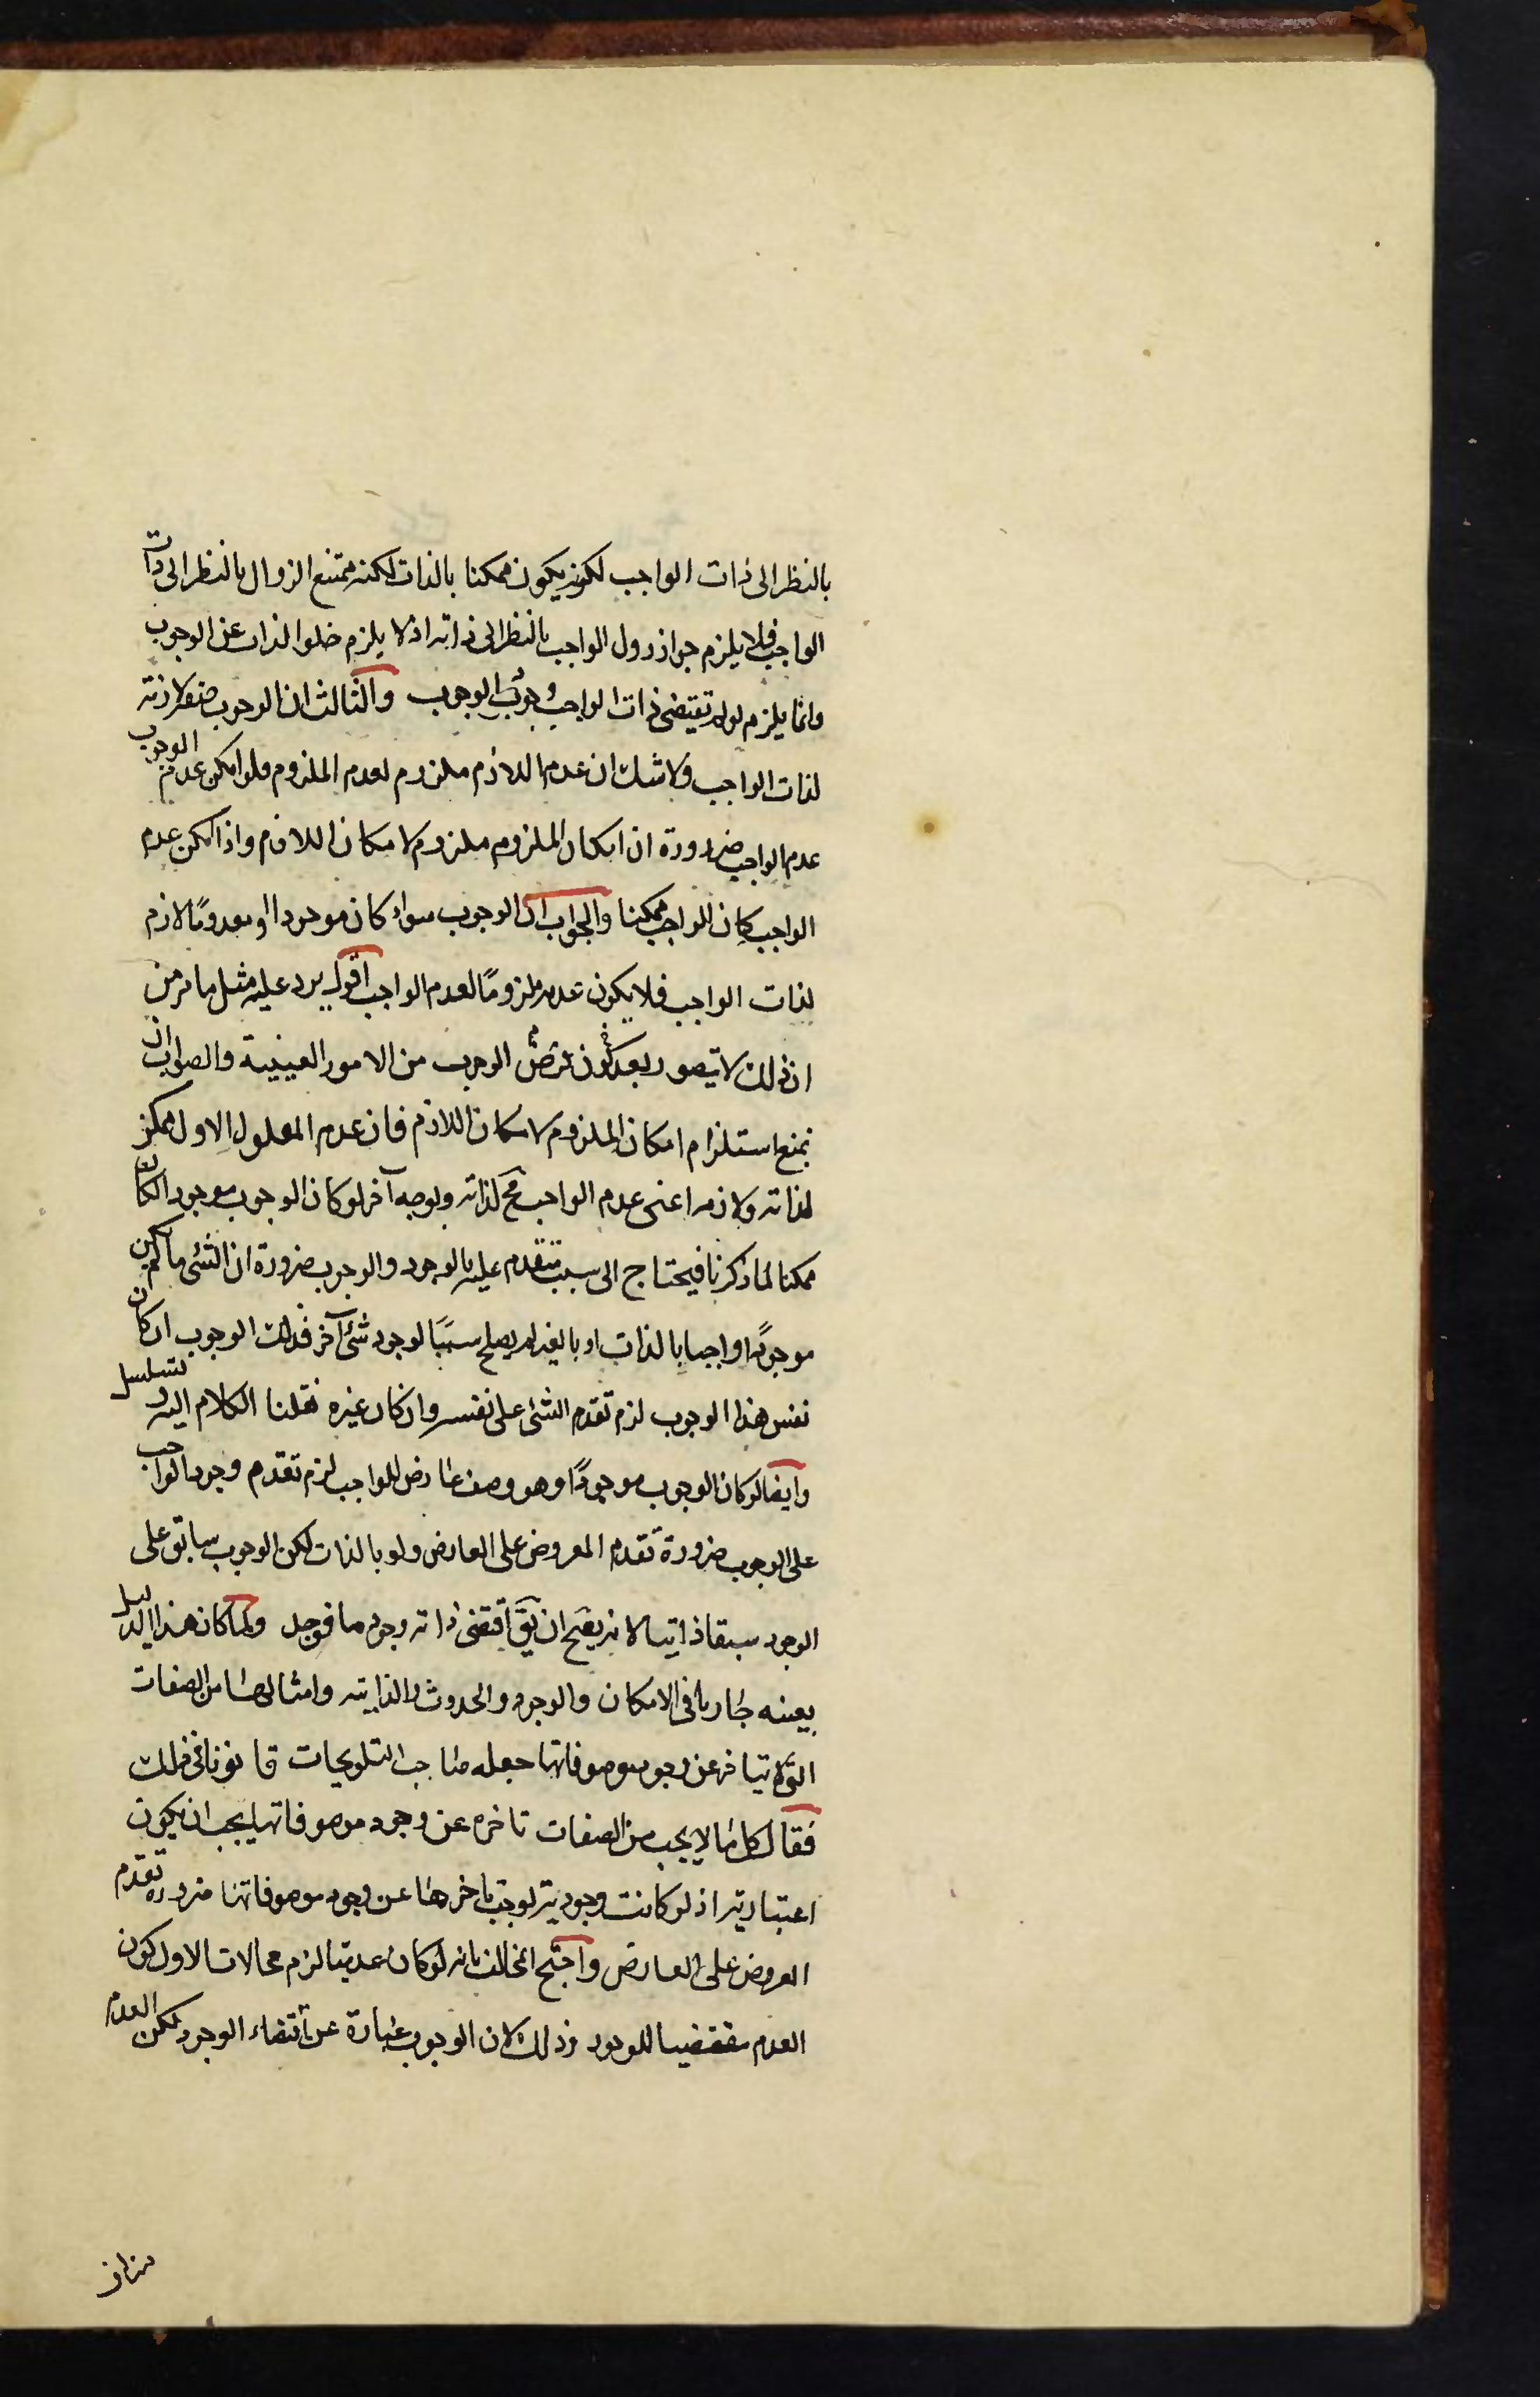 بالنظر الى ذات الواجب لكونه يكون ممكنا بالذات لكنه ممتنع الزوال بالنظر الى ذات
الواجب فلا يلزم جواز زوال الواجب بالنظر الى ذاته اذ لا يلزم خلو الذات عن الوجوب
وانما يلزم لو لم تقتضى ذات الواجب وجوب الوجوب والثالث ان الوجوب صفة لازمة
لذات الواجب ولا شك ان عدم اللازم ملزوم لعدم الملزوم فلو امكن عدم الوجوب
عدم الواجب ضرورة ان امكان الملزوم ملزوم لامكان اللازم واذا امكن عدم
الواجب كان الواجب ممكنا والجواب ان الوجوب سواء كان موجودا او معدومًا لازم
لذات الواجب فلا يكون عدمه ملزومًا لعدم الواجب اقول يرد عليه مثل ما مر من
ان ذلك لا يتصور بعد كون الوجوب من الامور العينية والصواب ان
نمنع استلزام امكان الملزوم لامكان اللازم فان عدم المعلول الاول ممكن
لذاته ولازمه اعنى عدم الواجب مح لذاته وبوجه آخر لو كان الوجوب موجودا لكان
ممكنا لما ذكرنا فيحتاج الى سبب متقدم عليه بالوجود والوجوب ضرورة ان الشئ ما لم يكن
موجودًا واجبا بالذات او بالغير لم يصلح سببًا لوجود شئ آخر فذلك الوجوب ان كان
نفس هذا الوجوب لزم تقدم الشئ على نفسه وان كان غيره نقلنا الكلام اليه وتسلسل
وايضا لو كان الوجوب موجودًا وهو وصف عارض للواجب لزم تقدم وجود الواجب
على الوجوب ضرورة تقدم المعروض على العارض ولو بالذات لكن الوجوب سابق على
الوجود سبقا ذاتيا لانه يصح ان يق اقتضى ذاته وجوده ما فوجد ولما كان هذا الدليل
بعينه جاريا فى الامكان والوجود والحدوث والذاتية وامثالها من الصفات
التى لا يتاخر عن وجود موصوفاتها جعله صاحب التلويحات قانونا فى ذلك
فقال كل ما لا يجب من الصفات تاخره عن وجود موصوفاتها يجب ان يكون
اعتبارية اذ لو كانت وجودية لوجب تاخرها عن وجود موصوفاتها ضرورة تقدم
المعروض على العارض واحتج المخالف بانه لو كان عدميا لزم محالات الاول كون
العدم مقتضيا للوجود وذلك لان الوجوب عبارة عن اقتضاء الوجود لكن العدم
مناف